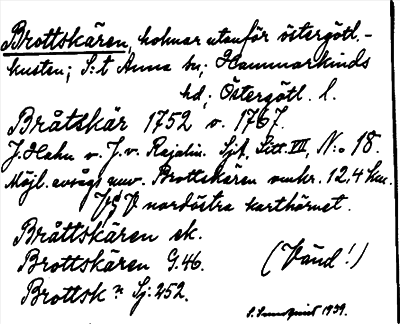 Brottskären, holmar utanför östergötl.-
kusten; S:t Anna sn; Hammarkinds
hd; Östergötl. l.
Bråtskär 1752 o. 1767.
J. Hahn o. J. v. Rajalin. Sjk, Litt. VII, N:o 18.
Möjl. avsågs nuv. Brottskären omkr. 12,4 km.
nordöstra karthörnet.
Bråttskären ek.
Brottskären G.46.
(Vänd!)
Brottsk:n Sj: 252.
1939.